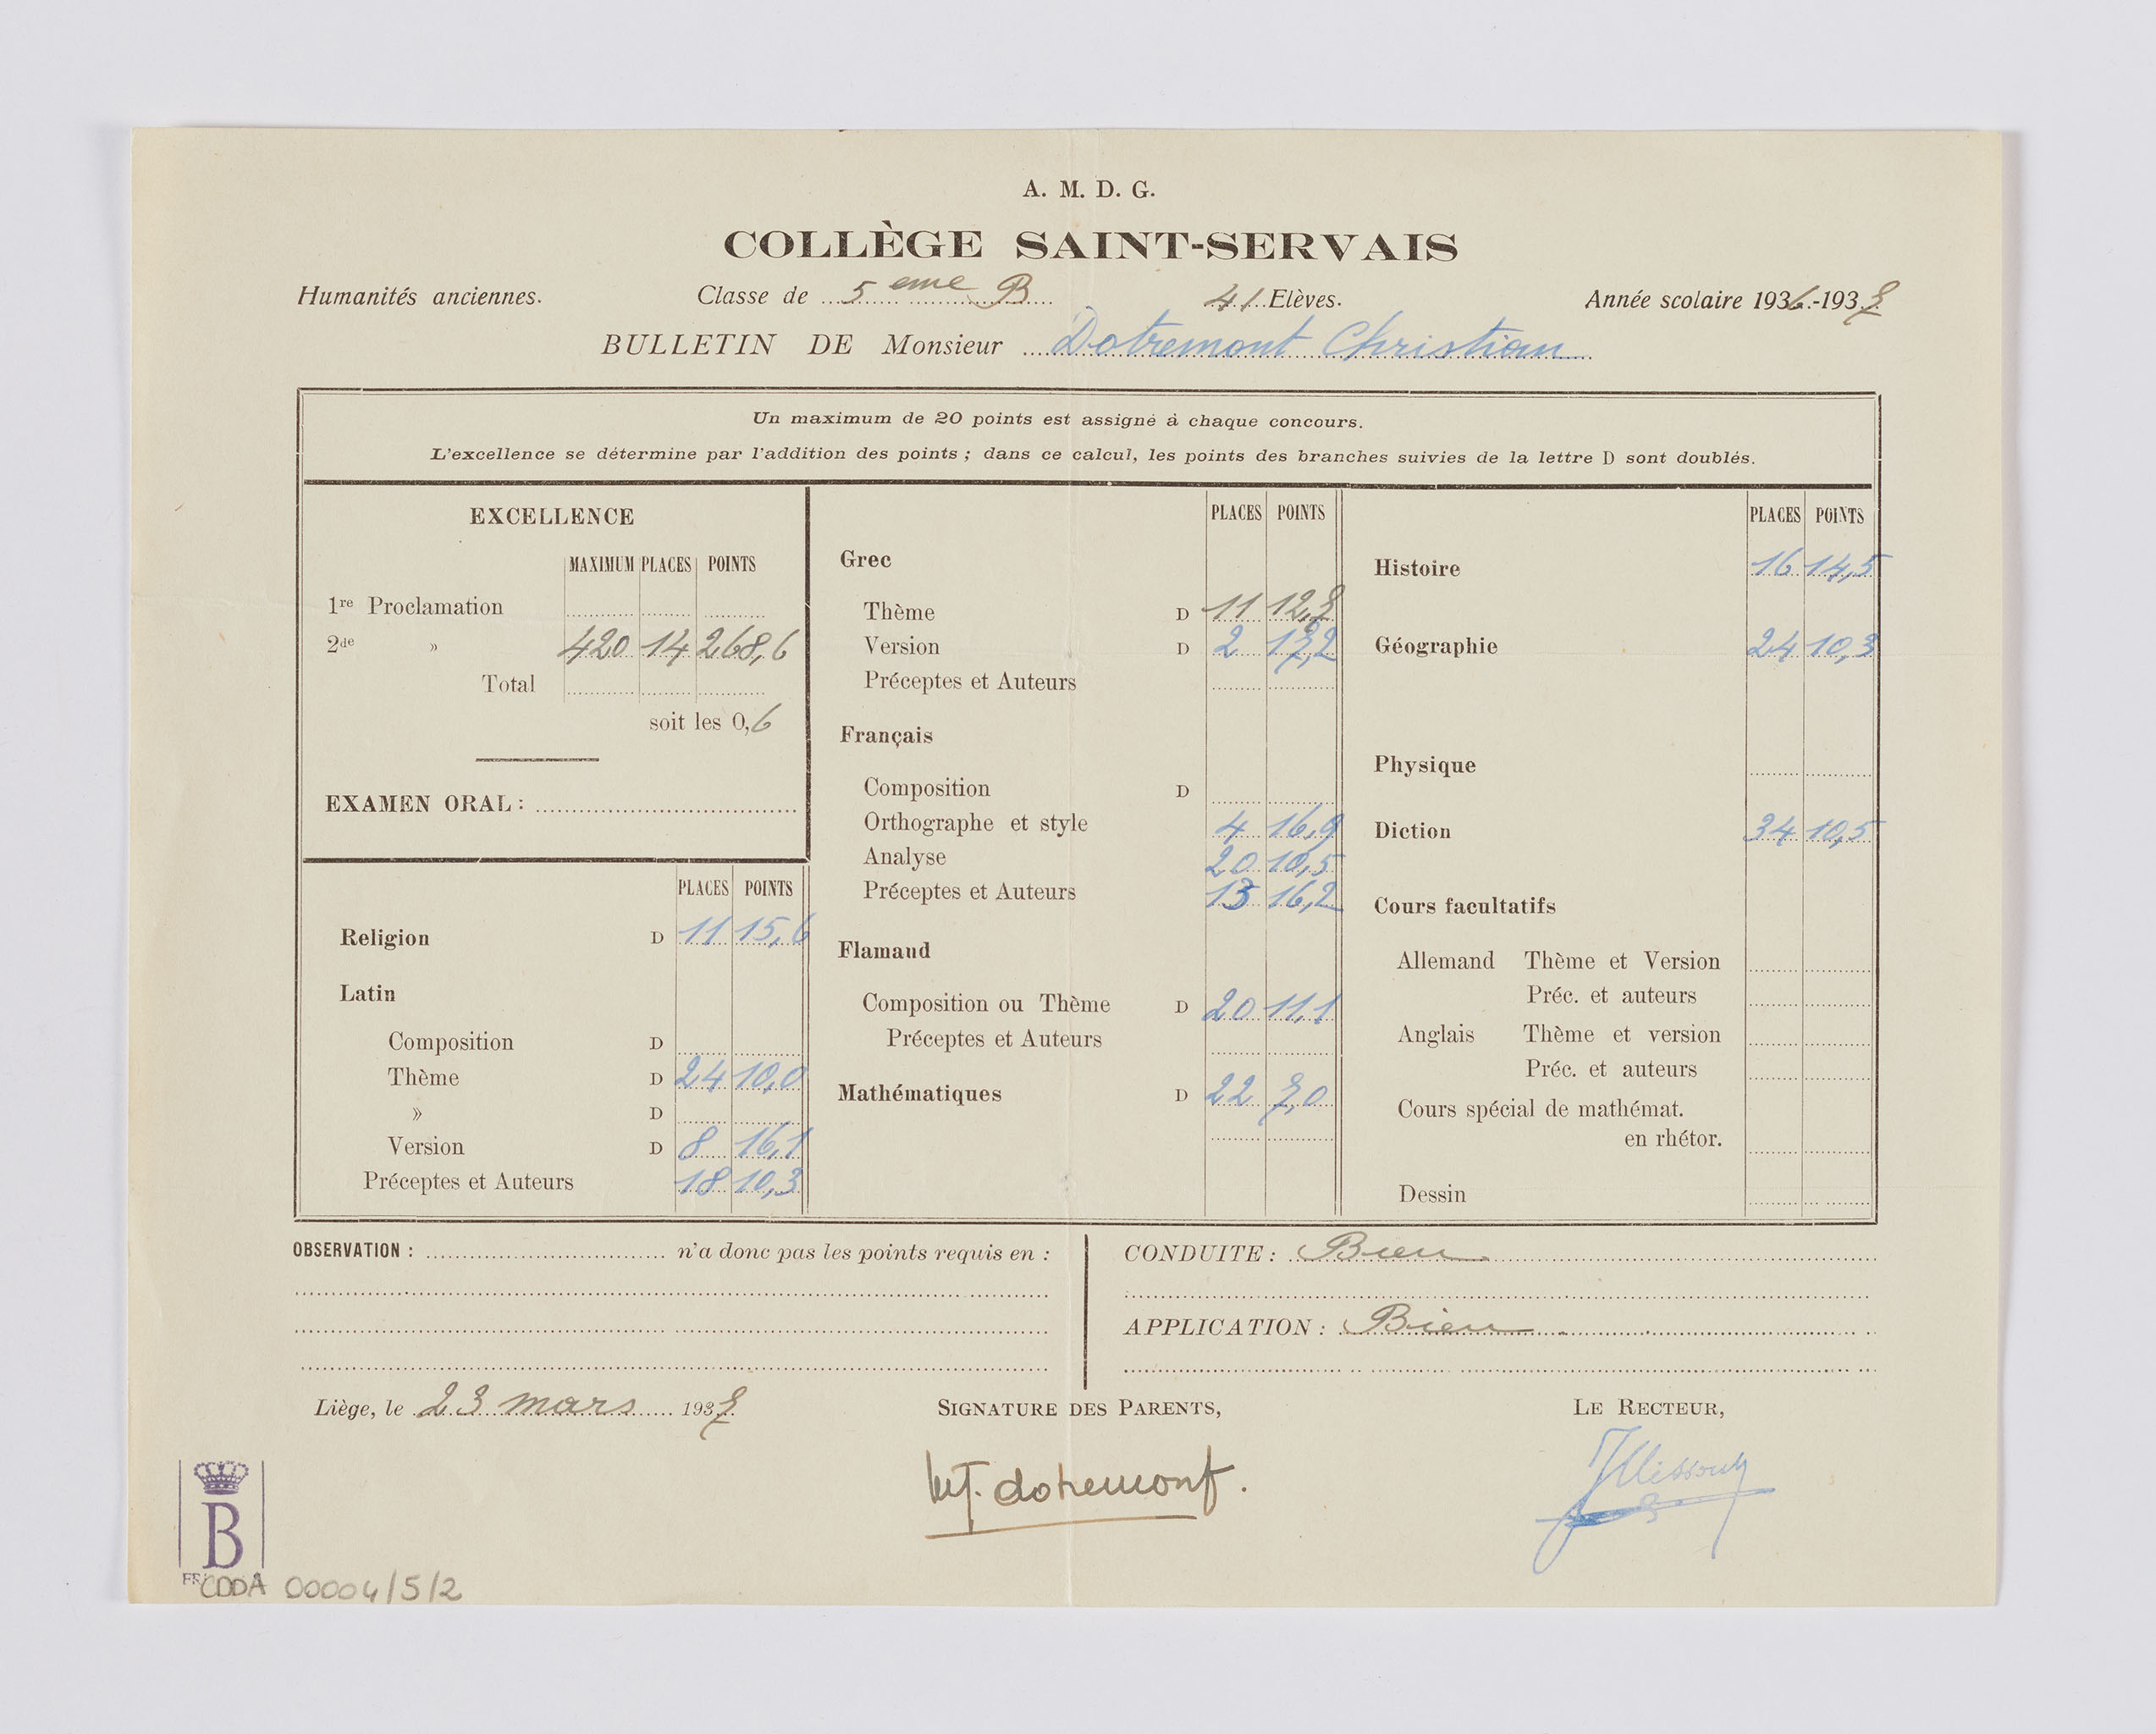 A. M. D. G.
COLLÈGE SAINT-SERVAIS
Humanités anciennes. Classe de 5eme B 41 Elèves. Année scolaire 1936-1937
BULLETIN DE Monsieur Dotremont Christian
Un maximum de 20 points est assigné à chaque concours.
L'excellence se détermine par l'addition des points ; dans ce calcul, les points des branches suivies de la lettre D sont doublés.
EXCELLENCE
MAXIMUM PLACES POINTS
1re Proclamation
2de » 420 14 268,6
Total
soit les 0,6
EXAMEN ORAL :
PLACES POINTS
Religion D 11 15,6
Latin
Composition D
Thème D 24 10,0
» D
Version D 8 16,1
Préceptes et Auteurs 18 10,3
PLACES POINTS
Grec
Thème D 11 12,7
Version D 2 17,2
Préceptes et Auteurs
Français
Composition D
Orthographe et style 4 16,9
Analyse 20 10,5
Préceptes et Auteurs 13 16,2
Flamand
Composition ou Thème D 20 11,1
Préceptes et Auteurs
Mathématiques D 22 7,0
PLACES POINTS
Histoire 16 14,5
Géographie 24 10,3
Physique
Diction 34 10,5
Cours facultatifs
Allemand Thème et Version
Préc. et auteurs
Anglais Thème et version
Préc. et auteurs
Cours spécial de mathémat.
en rhétor.
Dessin
OBSERVATION : n'a donc pas les points requis en :
CONDUITE : Bien
APPLICATION : Bien
Liège, le 23 mars 1937
SIGNATURE DES PARENTS,
LE RECTEUR,
dotremont.
B
CDDA 00004/5/2